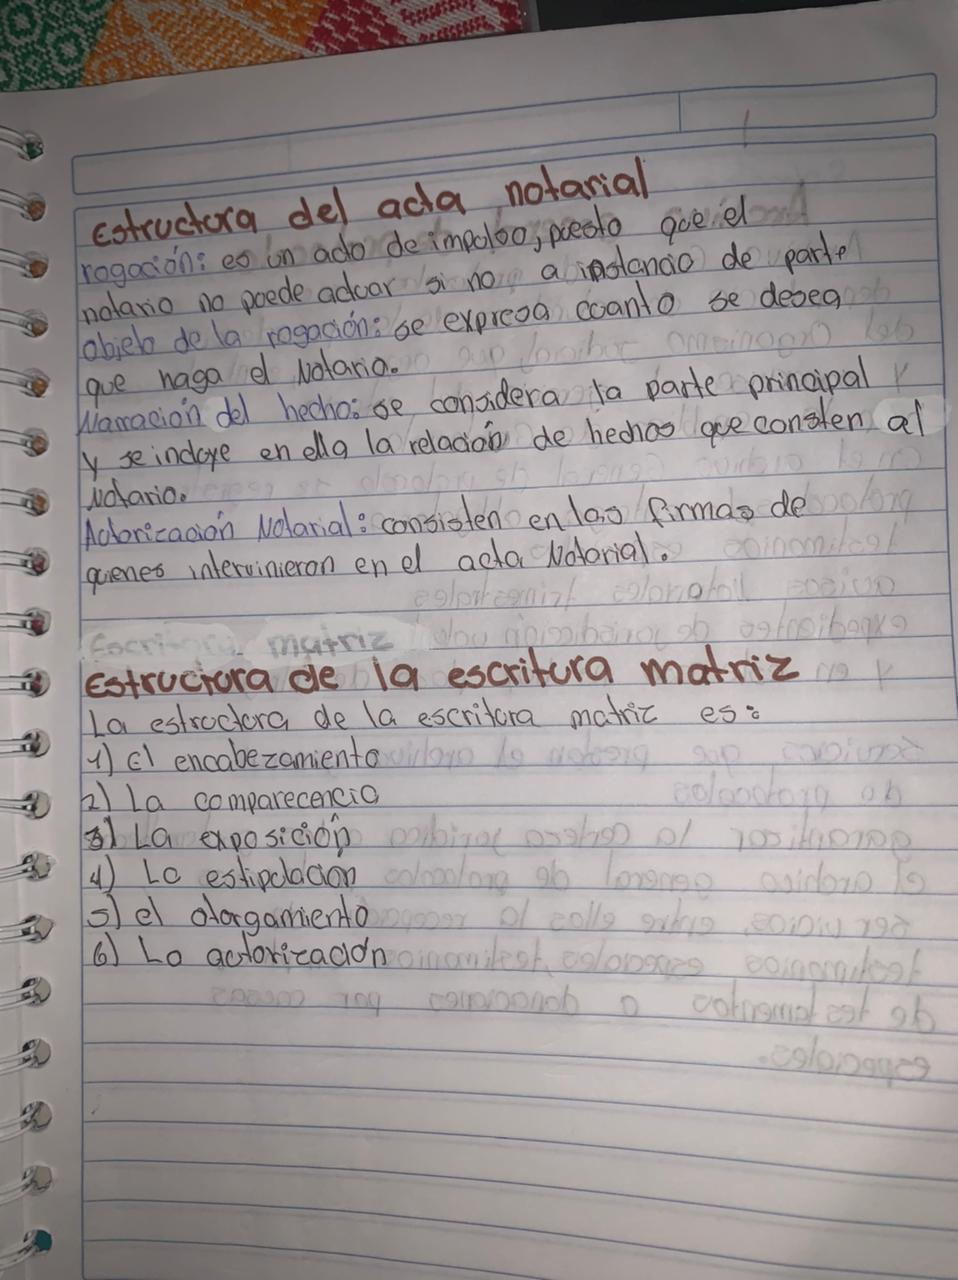 Estructura del acta notarial
rogación: es un acto de impulso, puesto que el
notario no puede actuar si no a instancia de parte
objeto de la rogación: se expresa cuanto se desea
que haga el Notario.
Narración del hecho: se considera la parte principal
y se incluye en ella la relación de hechos que consten al
Notario.
Autorización Notarial: consisten en las firmas de
quienes intervinieron en el acta Notarial.
Escritura matriz
Estructura de la escritura matriz
La estructura de la escritura matriz es:
1) El encabezamiento
2) La comparecencia
3) La exposición
4) La estipulación
5) el otorgamiento
6) La autorización